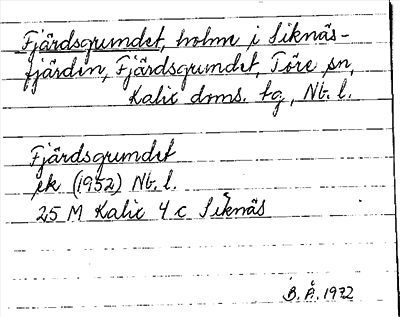 Fjärdsgrundet, holme i Siknäs-
fjärden, Fjärdsgrundet, Töre sn,
Kalix doms. tg, Nb. l.
Fjärdsgrundet
ek (1952) Nb. l.
25 M Kalix 4 c Siknäs
B. Å. 1972